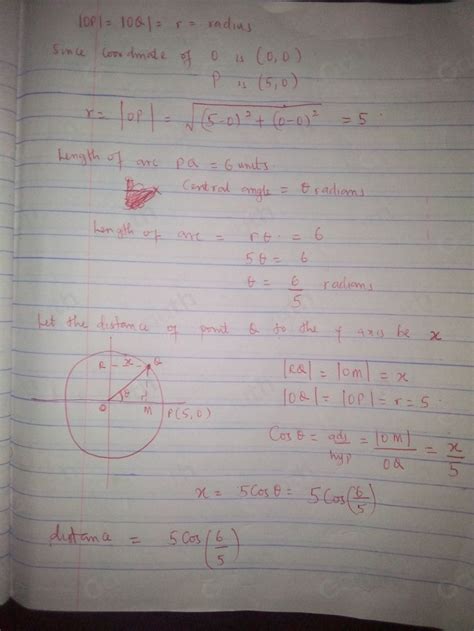 |OP| = |OQ| = r = radius
Since coordinate of O is (0,0)
P is (5,0)
r = |OP| = √((5-0)² + (0-0)²) = 5.
Length of arc PQ = 6 units.
Central angle = θ radians
Length of arc = rθ = 6
5θ = 6
θ = 6/5 radians
Let the distance of point Q to the y axis be x
R - x - Q
O θ M P(5,0)
|RQ| = |OM| = x
|OQ| = |OP| = r = 5.
Cosθ = adj/hyp = |OM|/OQ = x/5
x = 5Cosθ = 5Cos(6/5)
distance = 5Cos(6/5)